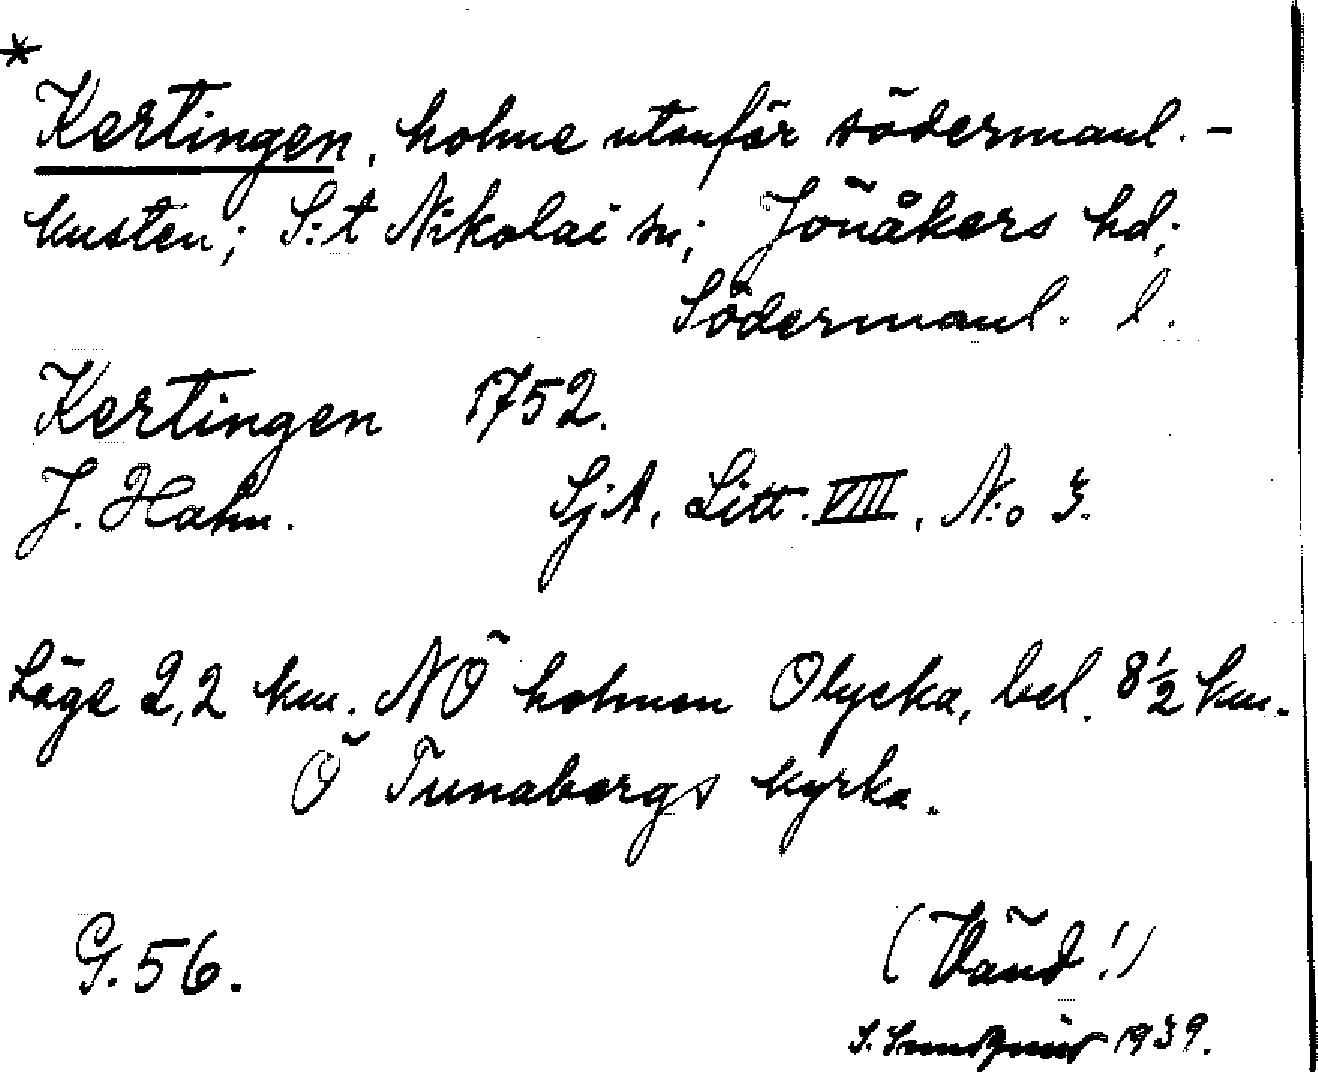 *
Kertingen, holme utanför södermanl.-
kusten; S:t Nikolai sn; Jönåkers hd;
Södermanl. l.
Kertingen 1752.
J. Hahn. SjA. Litt. VIII, N:o 3.
Läge 2,2 km. NÖ holmen Olycka, bel. 8½ km.
Ö Tunabergs kyrka.
G. 56. (Vänd!)
S. Sundqvist 1939.